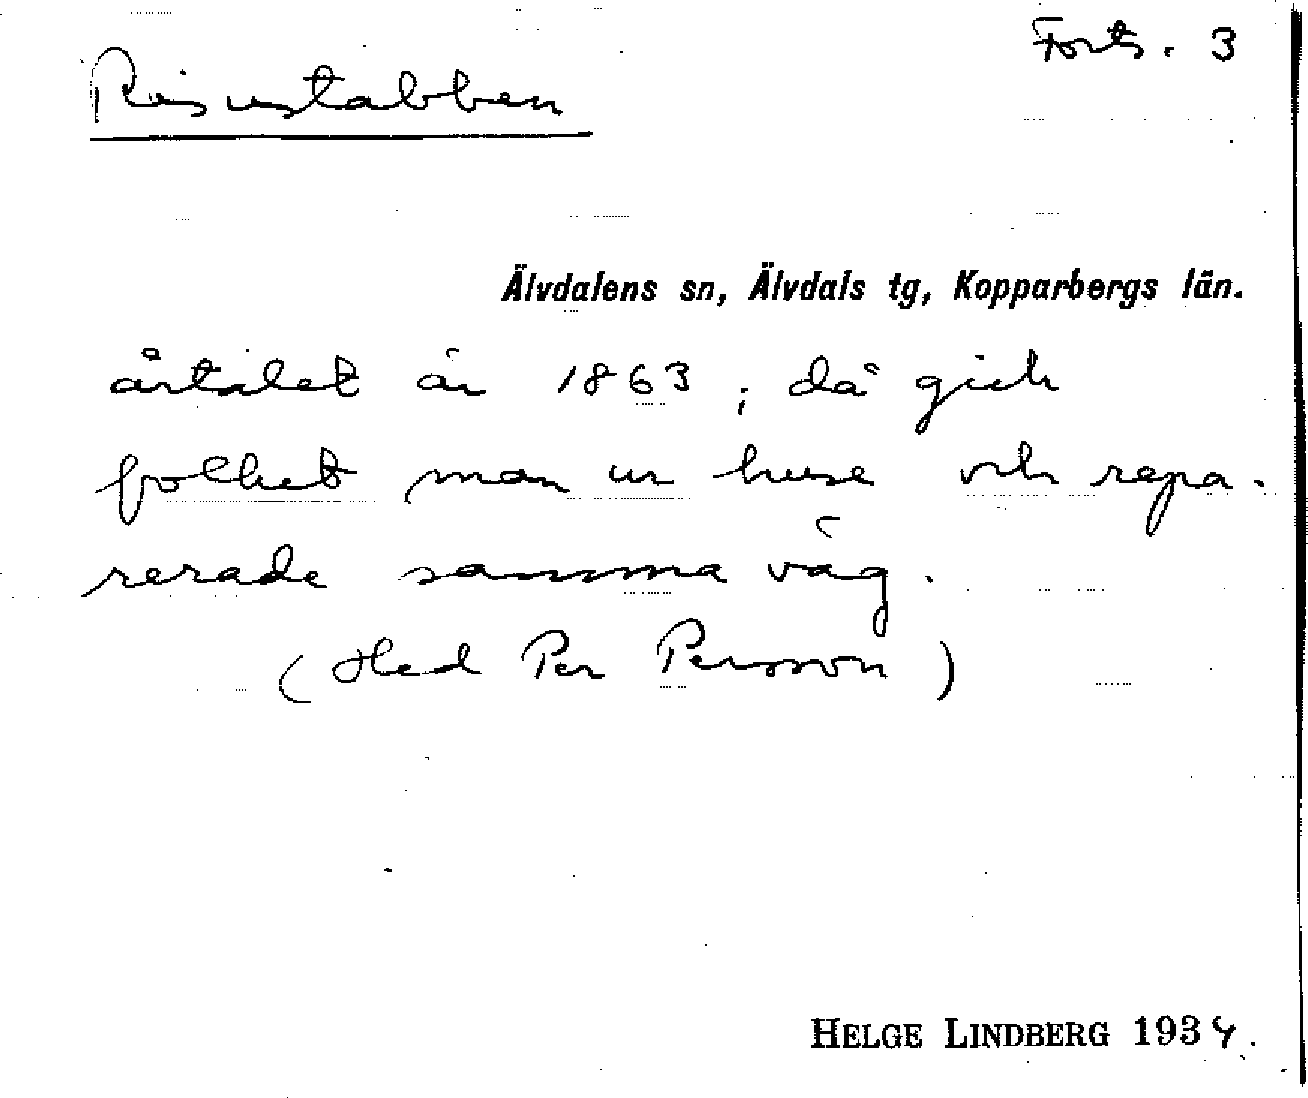 Forts. 3
Risustabben
Älvdalens sn, Älvdals tg, Kopparbergs län.
årtalet är 1863; då gick
folket man ur huse och repa-
rerade samma väg.
(Hed Per Persson)
HELGE LINDBERG 1934.